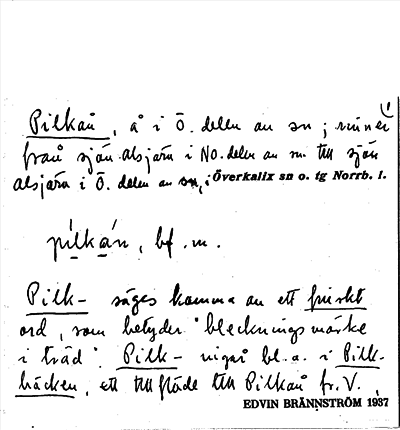 Pilkaån, å i Ö. delen av sn; rinner
från sjön Alsjärv i NO. delen av sn. till sjön
Alsjärv i Ö. delen av sn, i Överkalix sn o. tg Norrb. l.
pílkán, bf. m.
Pilk- säges komma av ett finskt
ord, som betyder "bleckningsmärke
i träd". Pilk- ingår bl.a. i Pilk-
bäcken, ett tillflöde till Pilkån fr. V.
EDVIN BRÄNNSTRÖM 1937